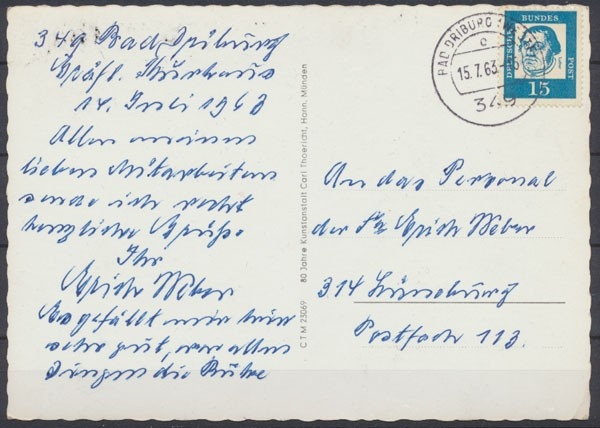 349 Bad Driburg
Gräfl. Kurhaus
14. Juli 1963
Allen meinen
lieben Mitarbeitern
sende ich recht
herzliche Grüße
Ihr
Erich Weber
Es gefällt mir hier
sehr gut, vor allen
Dingen die Ruhe
C T M 23069 80 Jahre Kunstanstalt Carl Thoericht, Hann. Münden
BAD DRIBURG
c
15.7.63
349
DEUTSCHE
BUNDES
POST
15
An das Personal
der Fa Erich Weber
314 Lüneburg
Postfach 113.